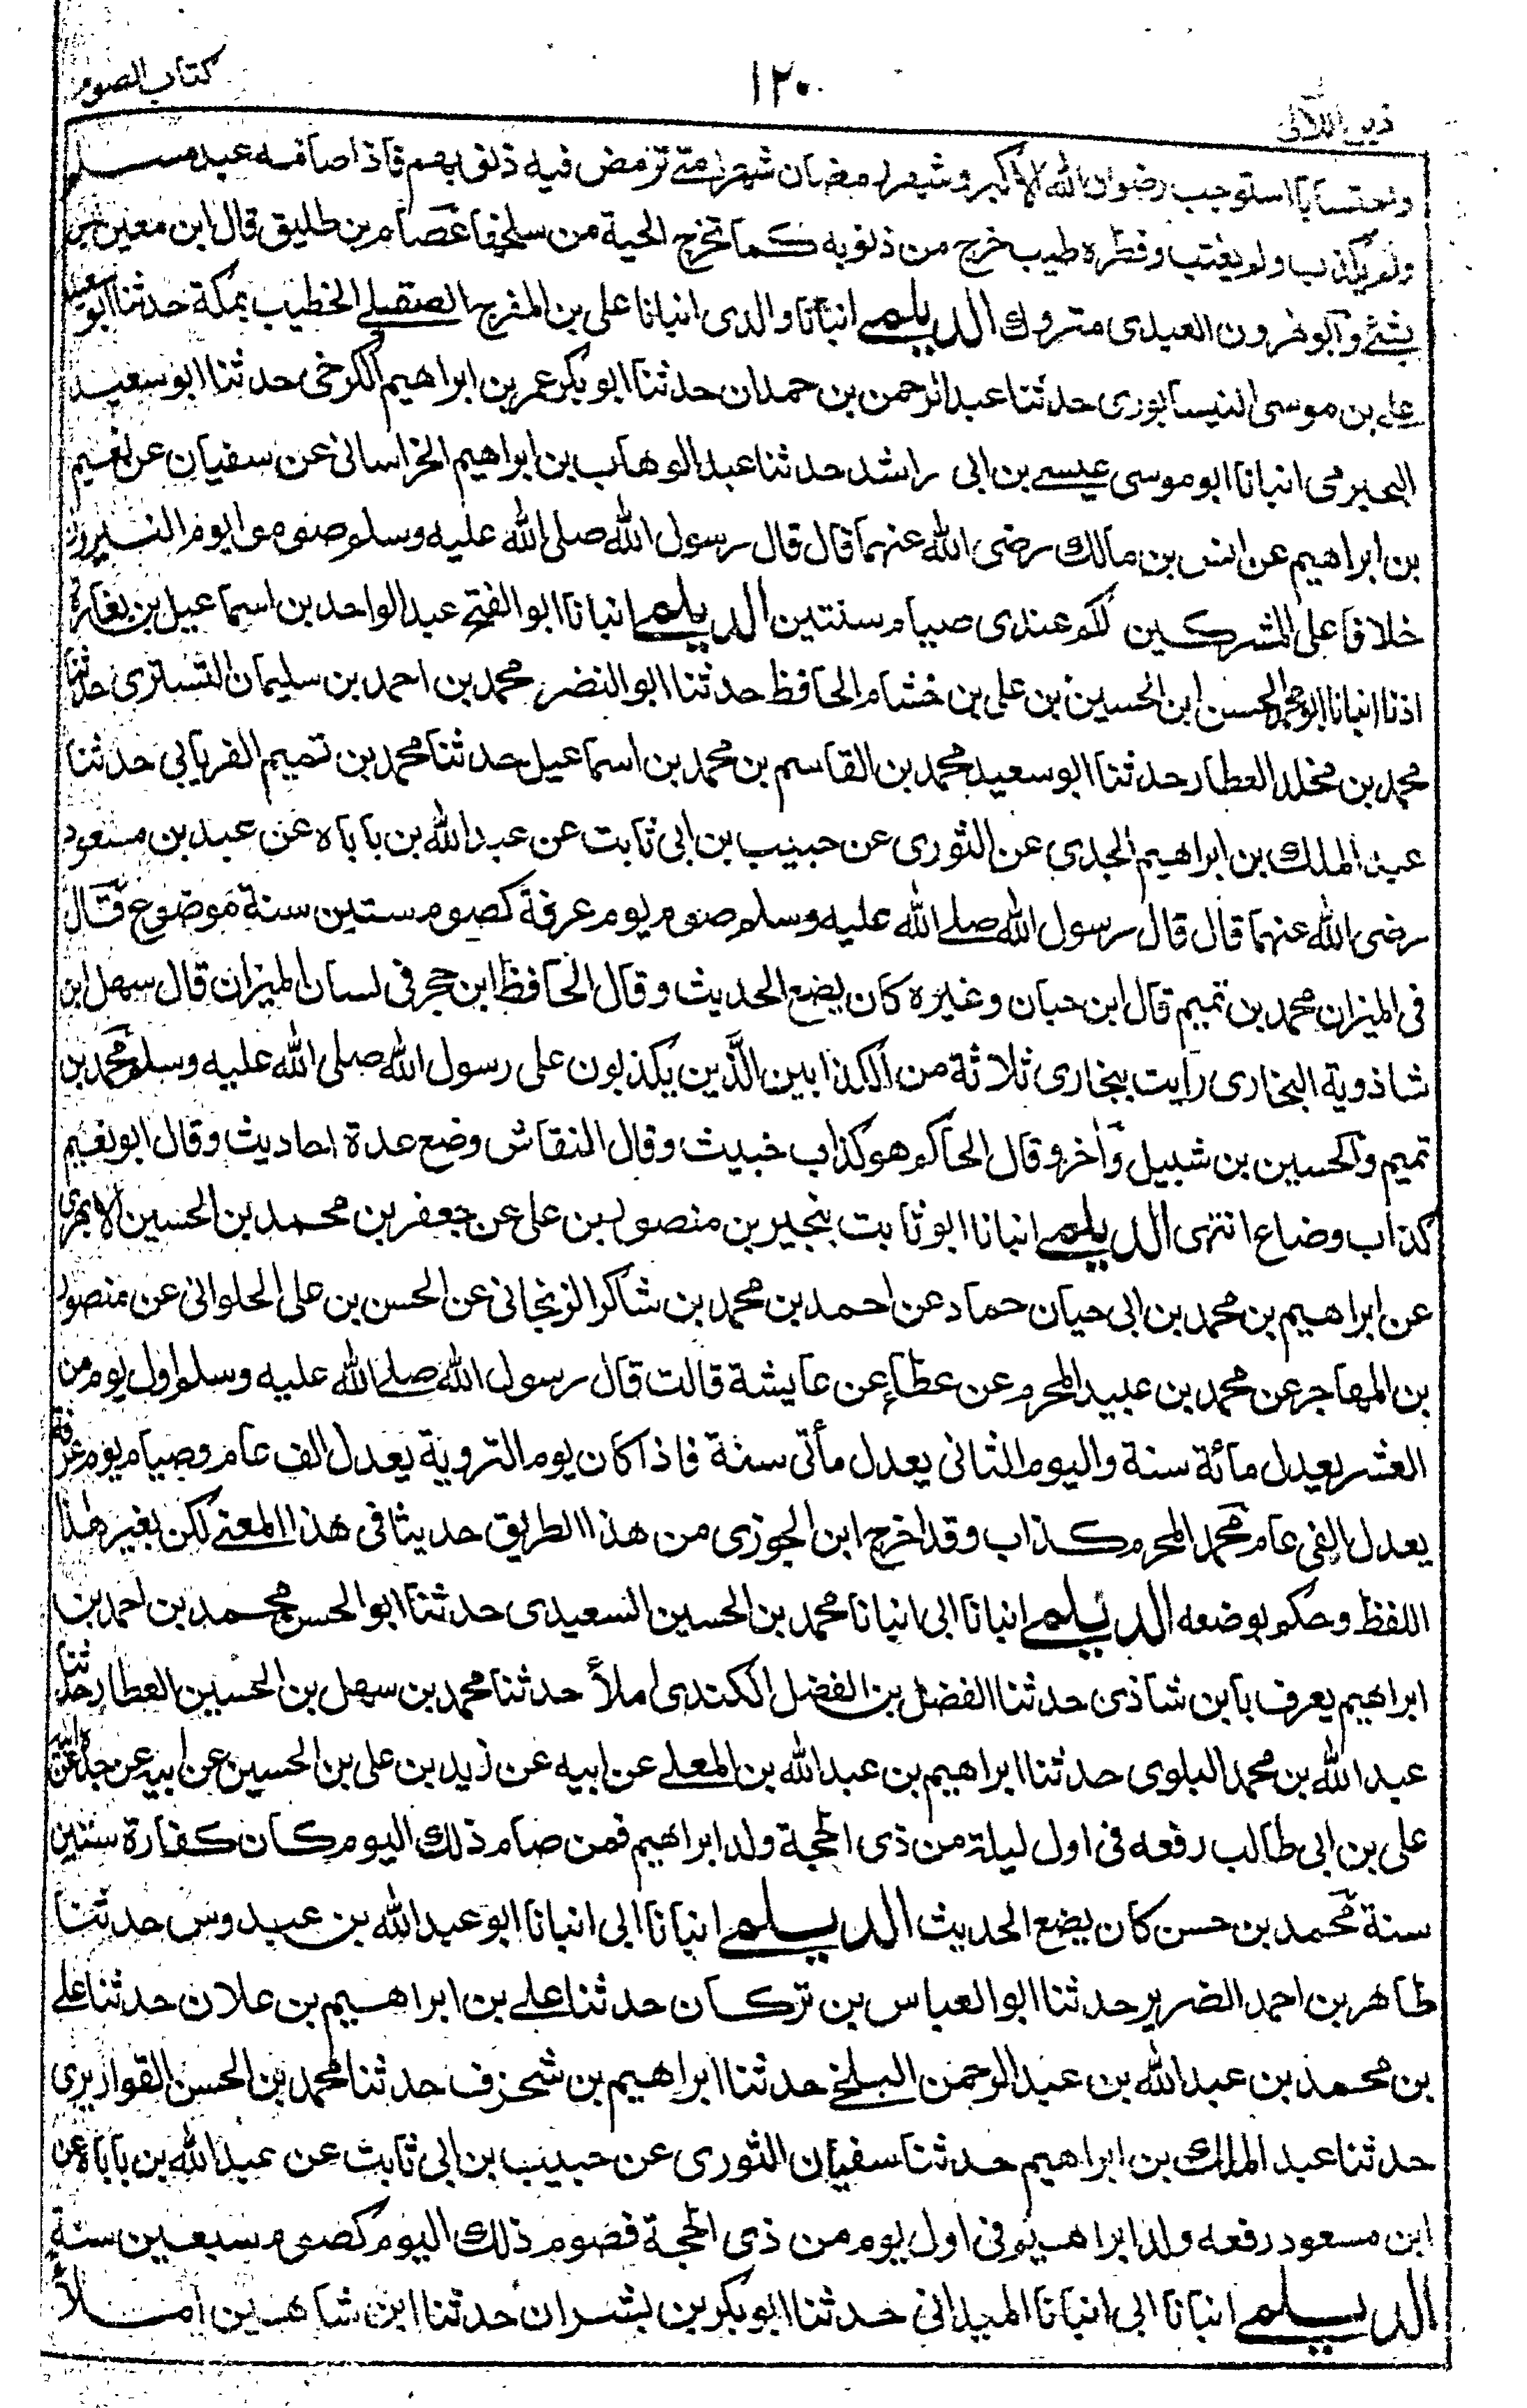 ذيل اللآلي
١٢٠
كتاب الصوم
واحتسابا استوجب رضوان الله الاكبر وشهر رمضان شهر امتى ترمض فيه ذنوبهم فاذا صامه عبد مسلم
ولم يكذب ولم يغتب وفطره طيب خرج من ذنوبه كما تخرج الحية من سلخها عصام بن طليق قال ابن معين ليس
بشئ وابو هرون العبدى متروك الديلمي انبانا والدى انبانا على بن المفرج الصقلي الخطيب بمكة حدثنا ابو سعيد
على بن موسى النيسابورى حدثنا عبد الرحمن بن حمدان حدثنا ابو بكر عمر بن ابراهيم الكرخى حدثنا ابو سعيد
انبانا ابو موسى عيسے بن ابى راشد حدثنا عبد الوهاب بن ابراهيم الخراسانى عن سفيان عن نعيم
بن ابراهيم عن انس بن مالك رضى الله عنهما قال قال رسول الله صلى الله عليه وسلم صوموا يوم النيروز
خلافا على المشركين لكم عندى صيام سنتين الديلمي انبانا ابو الفتح عبد الواحد بن اسماعيل بن
اذنا انبانا ابو محمد الحسن ابن الحسين بن على بن خشام الحافظ حدثنا ابو النضر محمد بن احمد بن سليمان التسترى حدثنا
محمد بن مخلد العطار حدثنا ابو سعيد محمد بن القاسم بن محمد بن اسماعيل حدثنا محمد بن تميم الفريابي حدثنا
عبد الملك بن ابراهيم الجدى عن الثورى عن حبيب بن ابى ثابت عن عبد الله بن باباه عن عبد بن مسعود
رضى الله عنهما قال قال رسول الله صلے الله عليه وسلم صوم يوم عرفة كصوم ستين سنة موضوع قال
فى الميزان محمد بن تميم قال ابن حبان وغيره كان يضع الحديث وقال الحافظ ابن حجر فى لسان الميزان قال سهل ابن
شاذوية البخارى رايت ببخارى ثلاثة من الكذابين الذين يكذبون على رسول الله صلى الله عليه وسلم محمد بن
تميم والحسين بن شبيل وآخر وقال الحاكم هو كذاب خبيث وقال النقاش وضع عدة احاديث وقال ابو نعيم
كذاب وضاع انتهى الديلمي انبانا ابو ثابت بنجير بن منصور بن على عن جعفر بن محمد بن الحسين الابهرى
عن ابراهيم بن محمد بن ابى حيان حماد عن احمد بن محمد بن شاكر الزنجانى عن الحسن بن على الحلوانى عن منصور
بن المهاجر عن محمد بن عبيد المحرم عن عطاء عن عايشة قالت قال رسول الله صلے الله عليه وسلم اول يوم من
العشر يعدل مائة سنة واليوم الثانى يعدل مأتى سنة فاذا كان يوم التروية يعدل الف عام وصيام يوم عرفة
يعدل الفى عام محمد المحرم كذاب وقد اخرج ابن الجوزى من هذا الطريق حديثا فى هذا المعنے لكن بغير هذا
اللفظ وحكم بوضعه الديلمي انبانا ابى انبانا محمد بن الحسين السعيدى حدثنا ابو الحسن محمد بن احمد بن
ابراهيم يعرف بابن شاذى حدثنا الفضل بن الفضل الكندى املاً حدثنا محمد بن سهل بن الحسين العطار حدثنا
عبد الله بن محمد البلوى حدثنا ابراهيم بن عبد الله بن المعلے عن ابيه عن زيد بن على بن الحسين عن ابيه عن جده عن
على بن ابى طالب رفعه فى اول ليلة من ذى الحجة ولد ابراهيم فمن صام ذلك اليوم كان كفارة ستين
سنة محمد بن حسن كان يضع الحديث الديلمي انبانا ابى انبانا ابو عبد الله بن عبدوس حدثنا
طاهر بن احمد الضرير حدثنا ابو العباس بن تركان حدثنا على بن ابراهيم بن علان حدثنا على
بن محمد بن عبد الله بن عبد الرحمن البلخے حدثنا ابراهيم بن شحزف حدثنا محمد بن الحسن القواريرى
حدثنا عبد الملك بن ابراهيم حدثنا سفيان الثورى عن حبيب بن ابى ثابت عن عبد الله بن باباه عن
ابن مسعود رفعه ولد ابراهيم فى اول يوم من ذى الحجة فصوم ذلك اليوم كصوم سبعين سنة
الديلمي انبانا ابى انبانا الميدانى حدثنا ابو بكر بن بشران حدثنا ابن شاهين املاً